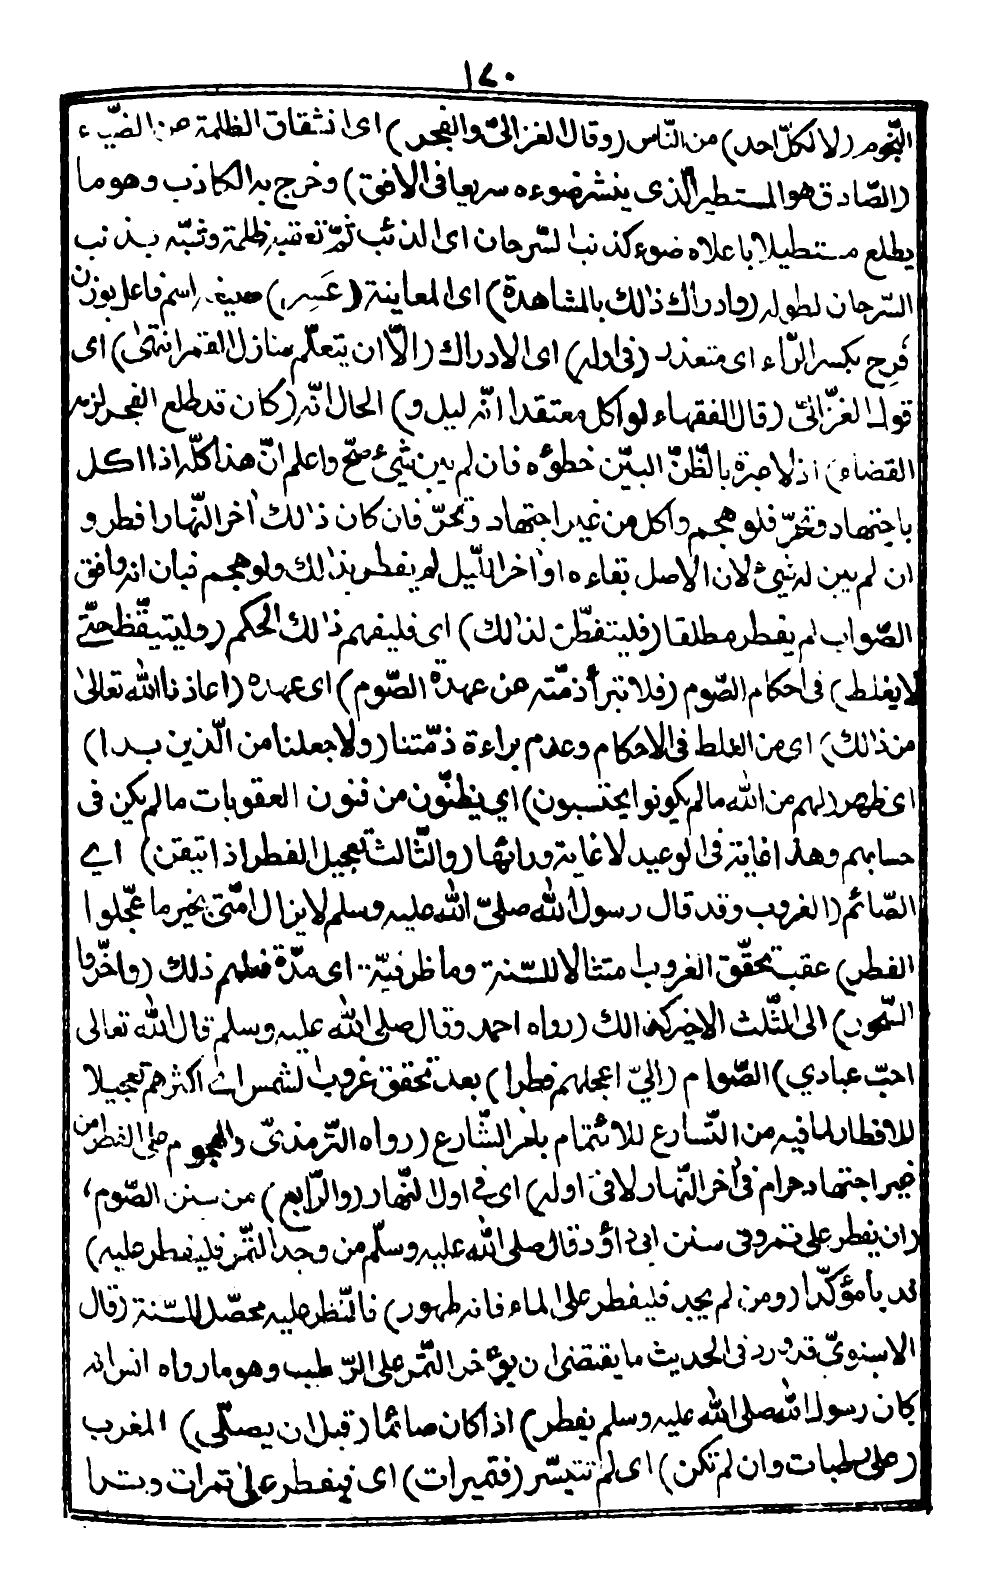 ١٤٠
النّجوم (لا لكلّ احد) من النّاس (وقال الغزاليّ والفجر) اى انشقاق الظلمة عن الضّيء
(الصّادق هو المستطير الّذى ينشر ضوءه سريعا فى الافق) وخرج به الكاذب وهو ما
يطلع مستطيلا باعلاه ضوء كذنب السّرحان اى الذئب ثمّ تعقبه ظلمة وشبّه بذنب
السّرحان لطوله (وادراك ذلك بالمشاهدة) اى المعاينة (عَسِر) صيغة اسم فاعل بوزن
فَرِح بكسر الرّاء اى متعذر (فى اوله) اى الادراك (الّا ان يتعلّم منازل القمر انتهىٰ) اى
قول الغزّاليّ (قال الفقهاء لو اكل معتقدا انّه ليل و) الحال انّه (كان قد طلع الفجر لزمه
القضاء) اذ لا عبرة بالظّنّ البيّن خطؤه فان لم يبن شيئ صحّ واعلم انّ هذا كلّه اذا اكل
باجتهاد وتحرّ فلو هجم واكل من غير اجتهاد وتحرّ فان كان ذالك اٰخر النّهار افطر و
ان لم يبن له شيئ لان الاصل بقاءه او اٰخر اللّيل لم يفطر بذالك ولو هجم فبان انه وافق
الصّواب لم يفطر مطلقا (فليتفطّن لذالك) اى فليفهم ذالك الحكم (وليتيقّظ حتّے
لا يغلط) فى احكام الصّوم (فلا تبرأ ذمّته عن عهدة الصّوم) اى عهده (اعاذنا الله تعالىٰ
من ذالك) اى من الغلط فى الاحكام وعدم براءة ذمّتنا (ولا جعلنا من الّذين بدا)
اى ظهر (لهم من الله ما لم يكونوا يحتسبون) اي يظنّون من فنون العقوبات ما لم يكن فى
حسابهم وهذا غاية فى الوعيد لا غاية ورائها (والثّالث تعجيل الفطر اذا تيقن) اے
الصّائم (الغروب وقد قال رسول الله صلىّ الله عليه وسلم لا يزال امّتى بخير ما عجّلوا
الفطر) عقب تحقّق الغروب امتثالا للسّنة وما ظرفيّة اى مدّة فعلهم ذلك (واخّروا
السّحور) الى الثّلث الاخير كذالك (رواه احمد وقال صلى الله عليه وسلم قال الله تعالى
احبّ عبادي) الصّوام (اليّ اعجلهم فطرا) بعد تحقق غروب الشمس اے اكثرهم تعجيلا
للافطار لما فيه من التّسارع للائتمام بامر الشّارع (رواه التّرمذىّ والهجوم على الفطر من
غير اجتهاد حرام فى اٰخر النّهار لا فى اوله) اى فى اول النّهار (والرّابع) من سنن الصّوم،
(ان يفطر على تمر وفى سنن ابى داؤد قال صلى الله عليه وسلّم من وجد التّمر فليفطر عليه)
ندبا مؤكّدا (ومن لم يجد فليفطر على الماء فانه طهور) فالفطر عليه محصّل للسّنة (قال
الاسنوىّ قد ورد فى الحديث ما يقتضى ان يؤخر التّمر على الرّطب وهو ما رواه انس انه
كان رسول الله صلى الله عليه وسلم يفطر) اذا كان صائما (قبل ان يصلّى) المغرب
(على رطبات وان لم تكن) اى لم تتيسّر (فتميرات) اى فيفطر على تمرات وبتدا